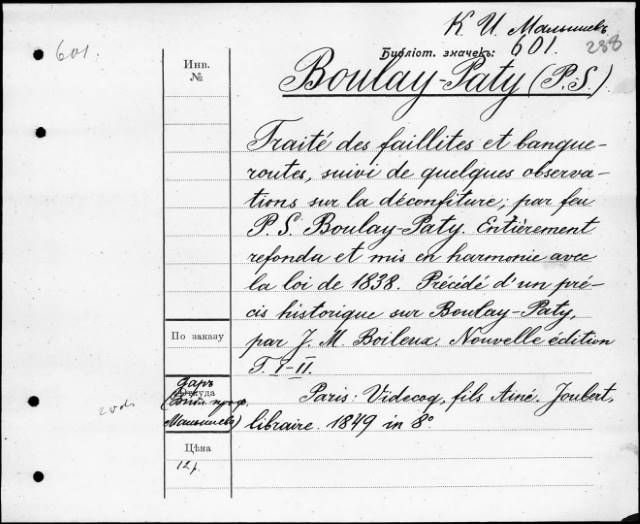 К. И. Малышевъ
601.
Инв.
№
Библіот. значекъ: 601. 288
Boulay-Paty (P. S.)
Traité des faillites et banque-
routes, suivi de quelques observa-
tions sur la déconfiture; par feu
P. S. Boulay-Paty. Entièrement
refondu et mis en harmonie avec
la loi de 1838. Précédé d'un pré-
cis historique sur Boulay-Paty,
По заказу
par J. M. Boileux. Nouvelle édition
T. I-II.
Даръ
Откуда
(Библ. проф.
Малышевъ)
Paris: Videcoq, fils Ainé. Joubert,
libraire. 1849 in 8°
Цѣна
12 р.